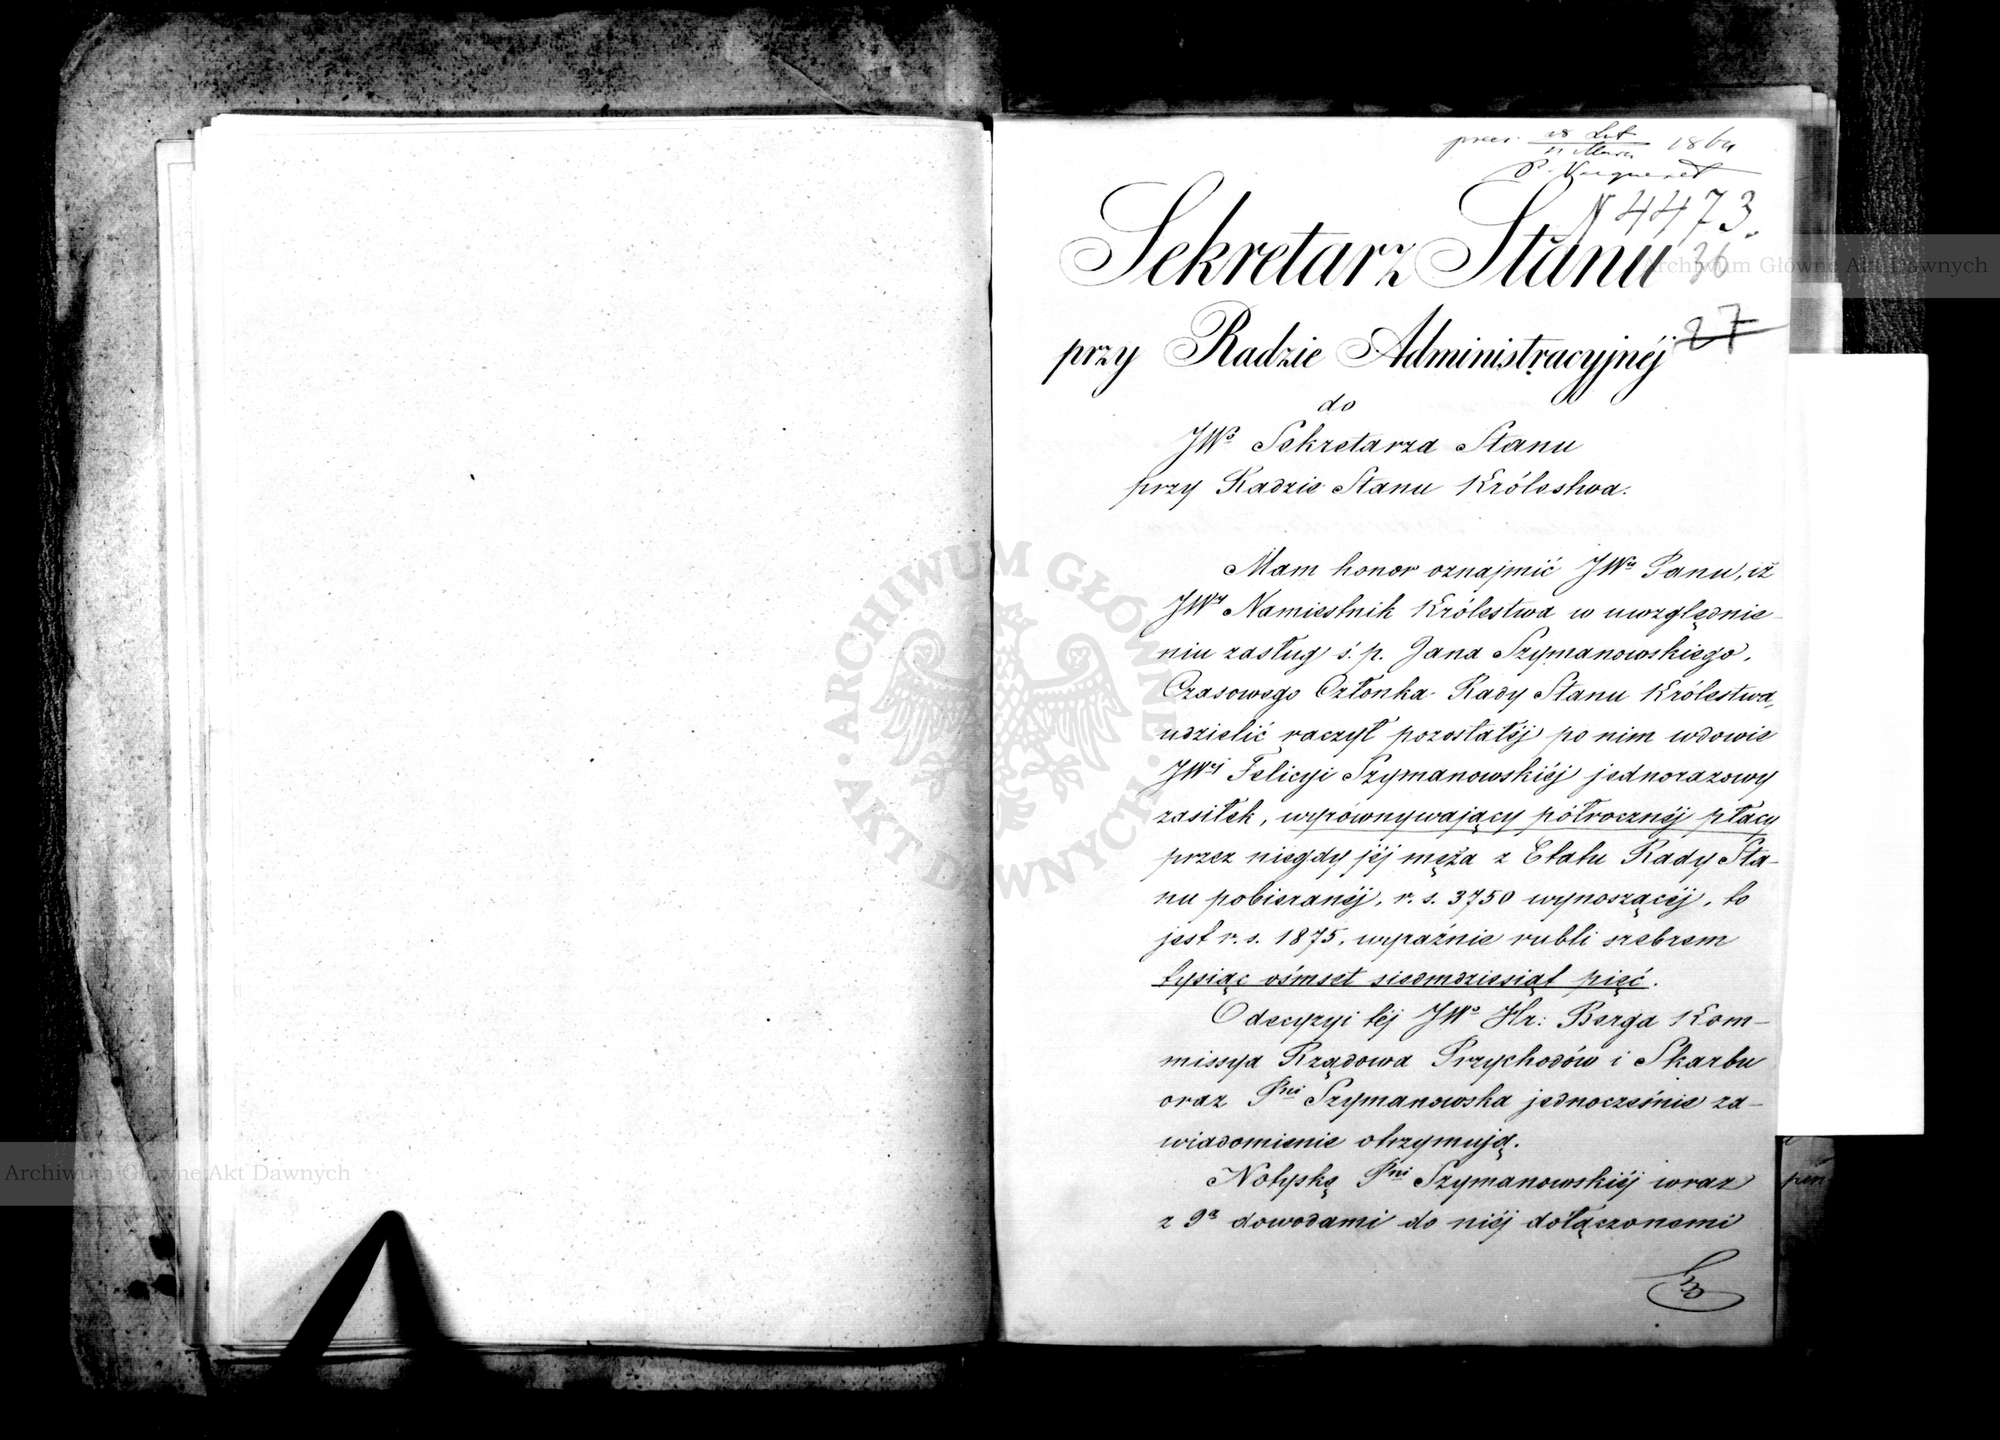 prez. 28 Lut. 1864
N 4473.
Sekretarz Stanu
36
przy Radzie Administracyjnéj
27
do
JWo Sekretarza Stanu
przy Radzie Stanu Królestwa.
Mam honor oznajmić JWu Panu, iż
JWy Namiestnik Królestwa w uwzględnie-
niu zasług ś. p. Jana Szymanowskiego,
Czasowego Członka Rady Stanu Królestwa,
udzielić raczył pozostałéj po nim wdowie
JWéj Felicyi Szymanowskiéj jednorazowy
zasiłek, wyrównywający półrocznéj płacy
przez niegdy jéj męża z Etatu Rady Sta-
nu pobieranéj, r. s. 3750 wynoszącéj, to
jest r. s. 1875, wyraźnie rubli srebrem
tysiąc ośmset siedmdziesiąt pięć.
O decyzyi téj JWo Hr: Berga Kom-
missya Rządowa Przychodów i Skarbu
oraz Pni Szymanowska jednocześnie za-
wiadomienie otrzymują.
Notyskę Pni Szymanowskiéj wraz
z 9a dowodami do niéj dołączonemi
ARCHIWUM GŁÓWNE AKT DAWNYCH
Archiwum Główne Akt Dawnych
Archiwum Główne Akt Dawnych